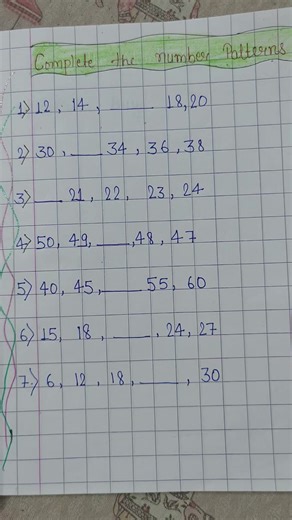 Complete the number Patterns
1) 12, 14, ____ 18, 20
2) 30, ___ 34, 36, 38
3) ___ 21, 22, 23, 24
4) 50, 49, ___, 48, 47
5) 40, 45, ____ 55, 60
6) 15, 18, ____, 24, 27
7) 6, 12, 18, ____, 30